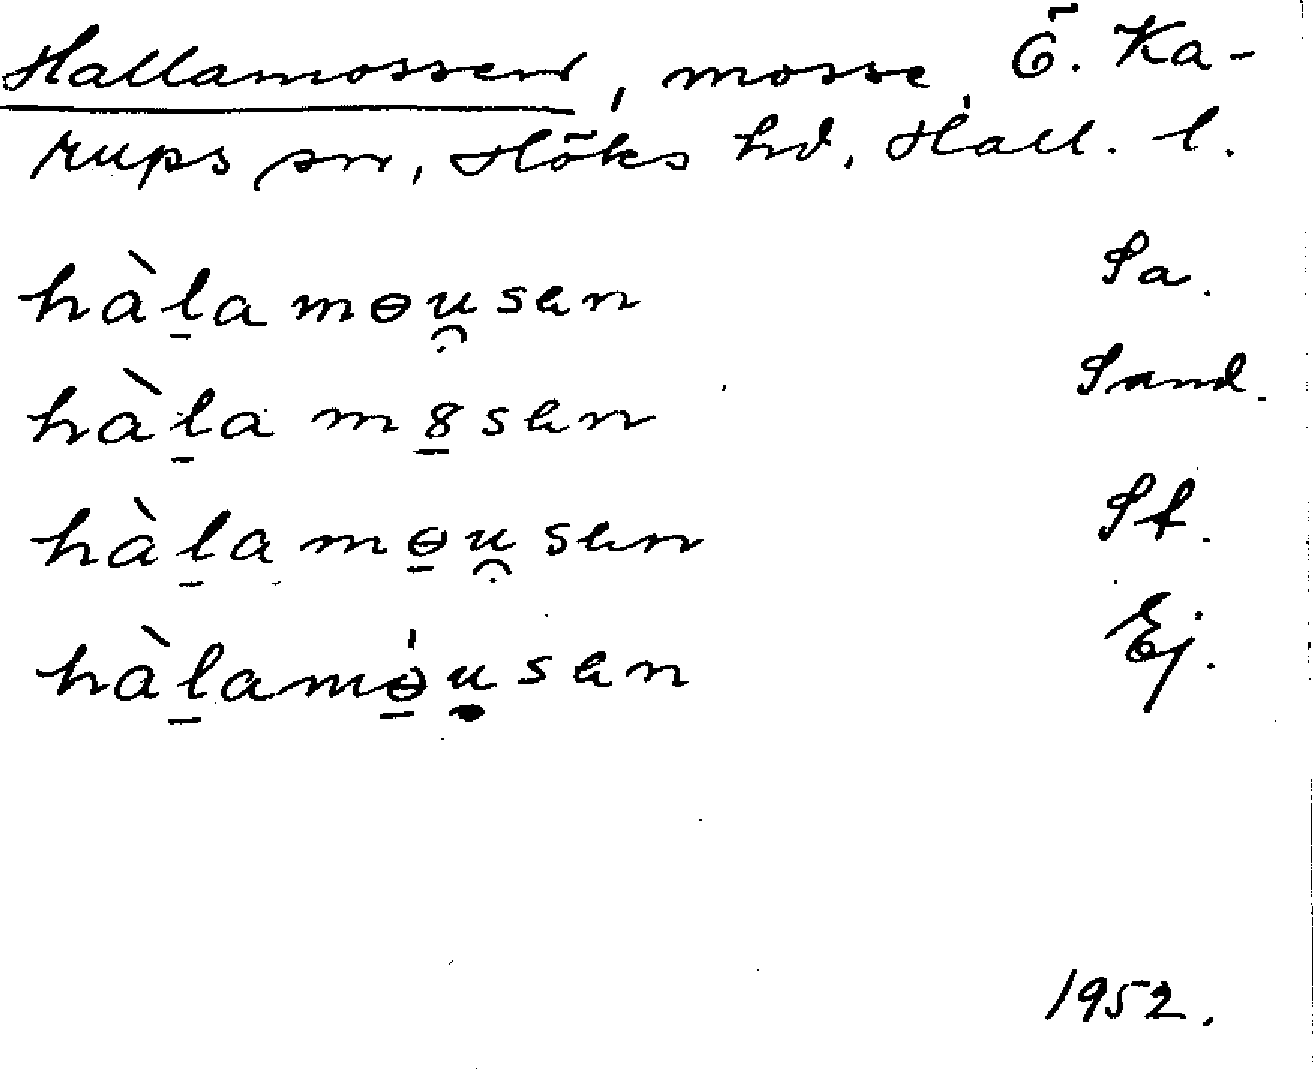 Hallamossen, mosse, Ö. Ka-
rups sn, Höks hd, Hall. l.
hàl̠a mɵu̯̇sen Sa.
hàl̠a m8̠sen Sand.
hàl̠a mɵ̠u̯̇sen St.
hàl̠amɵ̠́u̯sen Ej.
1952.